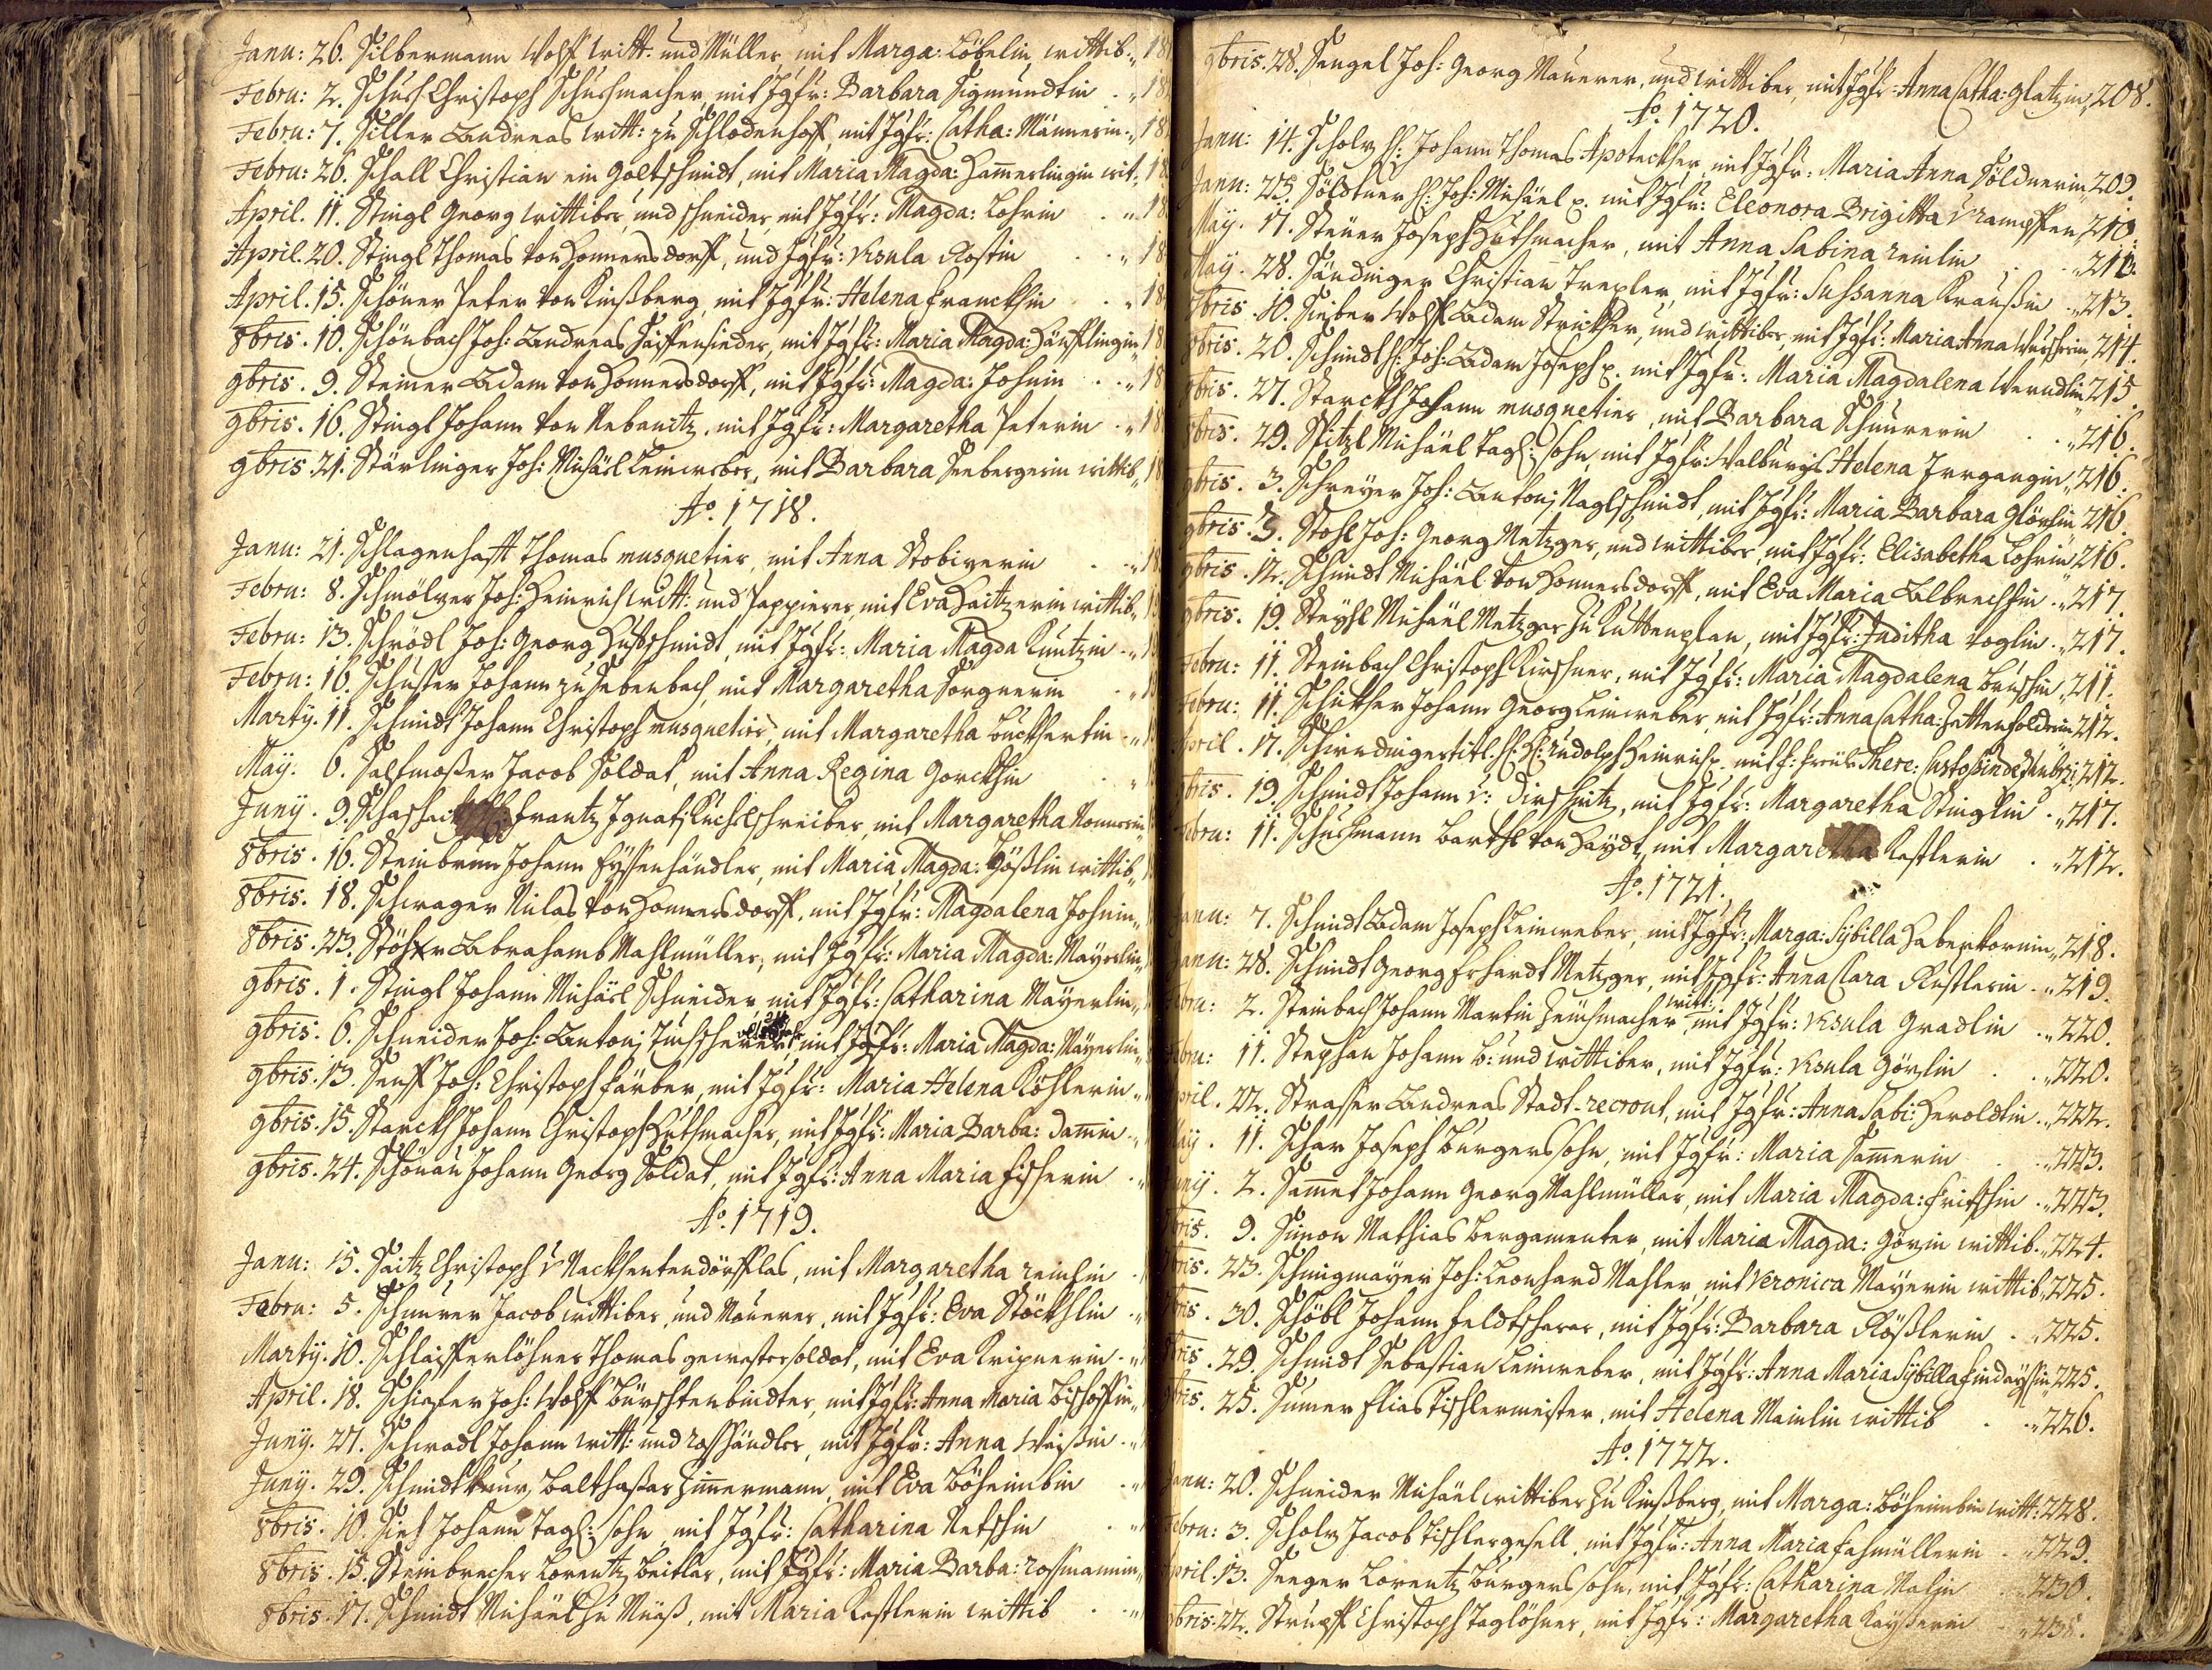 Janu: 26. Silbermann Wolff witt: und Müller, mit Marga: Löbelin wittib. „18
Febru: 2. Schuch Christoph Schuchmacher, mit Jgfr: Barbara Sigmundtin . „18
Febru: 7. Siller Andreas witt: zu Schladenhoff, mit Jgfr: Catha: Männerin. „18
Febru: 26. Schall Christian ein Goltschmidt, mit Maria Magda: Ham̄erlingin wit. 18
April. 11. Stingl Georg wittiber und schneider mit Jgfr: Magda: Lohrin . „18
April. 20. Stingl Thomas von Honnersdorff, und Jgfr: Ursula Rostin . . „18
April. 15. Schöner Peter von Kinßberg mit Jgfr: Helena Franckhin . . „18
8bris. 10. Schönbach Joh: Andreas Saiffensieder, mit Jgfr: Maria Magda: Hänfflingin 18
9bris. 9. Steiner Adam von Honnersdorff, mit Jgfr: Magda: Johnin . . „18
9bris. 16. Stingl Johann von Nebanitz, mit Jgfr: Margaretha Peterin . „18
9bris. 21. Stärlinger Joh: Michäel Leinweber, mit Barbara Seebergerin wittib „18
Aō. 1718.
Janu: 21. Schlagenhafft Thomas musquetier, mit Anna Stobizerin . „18
Febru: 8. Schmölzer Joh: Heinrich witt: und Pappierer, mit Eva Haitzerin wittib. „1
Febru: 13. Schrödl Joh: Georg Hufschmidt, mit Jgfr: Maria Magda Kuntzin . „1
Febru: 16. Schuster Johann zu Sebenbach, mit Margaretha Sorgnerin . „1
Martÿ. 11. Schmidt Johann Christoph musquetier, mit Margaretha Buckhertin „1
Maÿ: 6. Salfmoßer Jacob Soldat, mit Anna Regina Gorckhin „
Junÿ. 9. Frantz Ignati Küchelschreiber, mit Margaretha Nonnerin
8bris. 16. Steinbrunn Johann Eyssenhändler, mit Maria Magda: Hößlin wittib „
8bris. 18. Schwager Niclas von Honnersdorff, mit Jgfr: Magdalena Johnin „
8bris. 23. Stöhr Abrahamb Mahlmüller, mit Jgfr: Maria Magda: Mayrlin „
9bris. 1. Stingl Johann Michäel Schneider mit Jgfr: Catharina Mayerlin „
9bris. 6. Schneider Joh: Antoni Tuchscherer, mit Jgfr: Maria Magda: Mayerlin „
9bris. 13. Senff Joh: Christoph Färber, mit Jgfr: Maria Helena Köhlerin „
9bris. 15. Starckh Johann Christoph Huthmacher, mit Jgfr: Maria Barba: Dam̄in „
9bris. 24. Schönau Johann Georg Soldat, mit Jgfr: Anna Maria Fischerin . „
Aō. 1719.
Janu: 15. Saitz Christoph v Nackhentendörfflas, mit Margaretha Reinlin
Febru: 5. Schnurer Jacob wittiber, und Maurer, mit Jgfr: Eva Stöckhlin „
Martÿ. 10. Schlaifferlöhner Thomas gewester soldat, mit Eva Kripnerin . „
April. 18. Schiefer Joh: Wolff Bürschtenbindter, mit Jgfr: Anna Maria Bischoffin „
Junÿ. 27. Schwadl Johann witt: und Roßhändler, mit Jgfr: Anna Weißin . „
Junÿ. 29. Balthaßar Zimmermann, mit Eva Böheimbin „
8bris. 10. Johann Tagl: sohn, mit Jgfr: Catharina Netschin „
8bris. 15. Steinbrecher Lorentz Beitler, mit Jgfr: Maria Barba: Rossmannin „
8bris. 17. Schmidt Michäel zu Müeß, mit Maria Kastlerin wittib . „
9bris. 28. Sengel Joh: Georg Maurer, und wittiber, mit Jgfr: Anna Catha: Glatzin „208.
Aō. 1720.
Janu: 14. Scholz H: Johann Thomas Apoteckher, mit Jgfr: Maria Anna Söldnerin „209.
Janu: 23. Söldtner H: Joh: Michäel p. mit Jgfr: Eleonora Brigitta V rampffen „210.
Maÿ. 17. Steuer Joseph Huthmacher, mit Anna Sabina Reinlin . . „213.
Maÿ. 28. Sändinger Christian Trexler, mit Jgfr: Sussanna Kraußin . „213.
8bris. 10. Sieber Wolff Adam Strickher, und wittiber, mit Jgfr: Maria Anna 214.
8bris. 20. Schmidt H: Joh: Adam Joseph p. mit Jgfr: Maria Magdalena Werndlin „215.
8bris. 27. Starckh Johann musquetier, mit Barbara Schnurerin . . „216.
8bris. 29. Spitzl Michäel Tagl: sohn, mit Jgfr: Walburgis Helena Irrgangin „216.
9bris. 3. Schreyer Joh: Antoni Naglschmidt, mit Jgfr: Maria Barbara 216.
9bris. 3. Stohl Joh: Georg Metzger, und wittiber, mit Jgfr: Elisabetha Lohrin 216.
9bris. 12. Schmidt Michäel von Honnersdorff, mit Eva Maria Albrechtin . „217.
9bris. 19. Michäel Metzger zu Kuttenplan, mit Jgfr: Juditha Voglin . „217.
Febru: 11. Steinbach Christoph Kirschner, mit Jgfr: Maria Magdalena „211.
Febru: 11. Schickher Johann Georg Leinweber, mit Jgfr: Anna Catha: 212.
April. 17. Schirndinger titl. H: H: Rudolph Heinrich p. mit F: Freüle There: 212.
9bris. 19. Schmidt Johann v: Dirschnitz, mit Jgfr: Margaretha Stinglin . „217.
Febru: 11. Schuchmann Barthl von Haydt, mit Margaretha Kastlerin . „212.
Aō. 1721.
Janu: 7. Schmidt Adam Joseph Leinweber, mit Jgfr: Marga: Sÿbilla Haberkornin „218.
Janu: 28. Schmidt Georg Erhardt Metzger, mit Jgfr: Anna Clara Rustlerin . „219.
Febru: 2. Steinbach Johann Martin Zeuchmacher witt: mit Jgfr: Ursula Gradlin . „220.
Febru: 11. Stephan Johann B: und wittiber, mit Jgfr: Ursula Görzlin . . „220.
April. 22. Strasser Andreas Stadt-recrout, mit Jgfr: Anna Sabi: Heroldtin „222.
Maÿ. 11. Schar Joseph Burgers sohn, mit Jgfr: Maria Sam̄erin . . „223.
Junÿ. 2. Sam̄et Johann Georg Mahlmüller, mit Maria Magda: Fritschin . „223.
8bris. 9. Simon Mathias Bergamenter, mit Maria Magda: wittib. „224.
8bris. 23. Schmigmayer Joh: Leonhard Mahler, mit Veronica Mayerin wittib „225.
8bris. 30. Schöbl Johann Feldtscherer, mit Jgfr: Barbara Rößlerin . „225.
8bris. 29. Schmidt Sebastian Leinweber, mit Jgfr: Anna Maria Sÿbilla Findeyssin „225.
9bris. 25. Sumer Elias Tischlermeister, mit Helena Mainlin wittib . „226.
Aō. 1722.
Janu: 20. Schneider Michäel wittiber zu Kinßberg, mit Marga: Böheimbin witt: 228.
Febru: 3. Scholz Jacob Tischlergesell, mit Jgfr: Anna Maria Fahmüllerin . „229.
April. 13. Seeger Lorentz Burgers sohn, mit Jgfr: Catharina Malzin „230.
9bris. 22. Strupff Christoph Taglöhner, mit Jgfr: Margaretha Kayßerin „235.